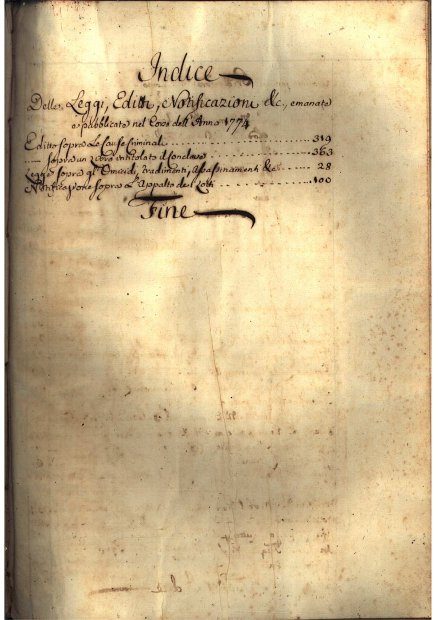 Indice
Delle Leggi, Editti, e Notificazioni &c., emanate
e pubblicate nel corso dell'Anno 1774
Editto sopra le Cause Criminali .................... 319
— sopra un libro intitolato il Conclave .............. 363
Legge sopra gl'Omicidj, tradimenti, assassinamenti &c ....... 28
Notificazione sopra l'Appalto de Lotti ............... 100
Fine